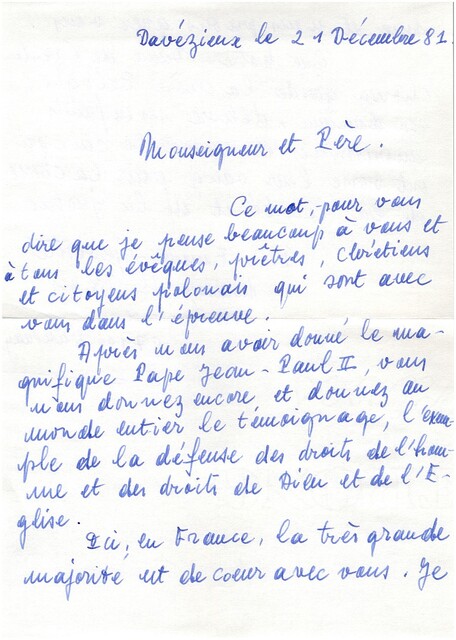 Davézieux le 21 Décembre 81.
Monseigneur et Père.
Ce mot, pour vous
dire que je pense beaucoup à vous et
à tous les évêques, prêtres, chrétiens
et citoyens polonais qui sont avec
vous dans l'épreuve.
Après nous avoir donné le ma-
gnifique Pape Jean-Paul II, vous
nous donnez encore, et donnez au
monde entier le témoignage, l'exem-
ple de la défense des droits de l'hom-
me et des droits de Dieu et de l'E-
glise.
Ici, en France, la très grande
majorité est de coeur avec vous. Je